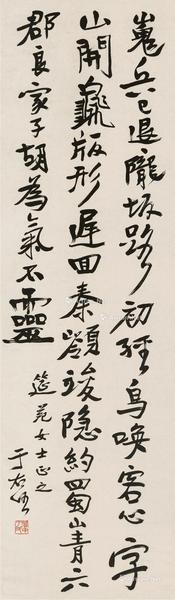 嵬兵已退隴坂路初經鳥喚客心字
山開龜版形遲回秦嶺峻隱約蜀山青六
郡良家子胡為氣不靈
筵苑女士正之
于右任